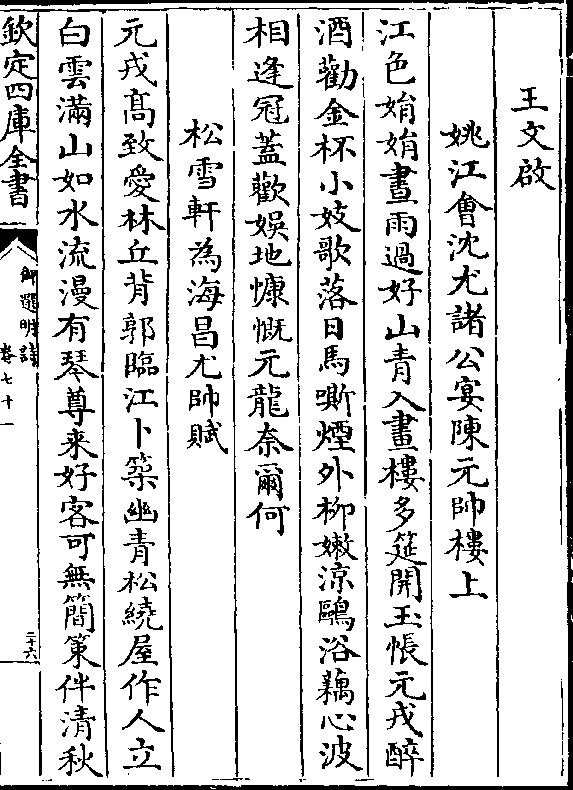 王文啟
姚江會沈尤諸公宴陳元帥樓上
江色娟娟晝雨過好山青入畫樓多筵開玉帳元戎醉
酒勸金杯小妓歌落日馬嘶煙外柳嫩涼鷗浴藕心波
相逢冠蓋歡娛地慷慨元龍奈爾何
松雪軒為海昌尤帥賦
元戎髙致愛林丘背郭臨江卜築幽青松繞屋作人立
白雲滿山如水流漫有琴尊来好客可無簡策伴清秋
欽定四庫全書
御選明詩
卷七十一
二十六